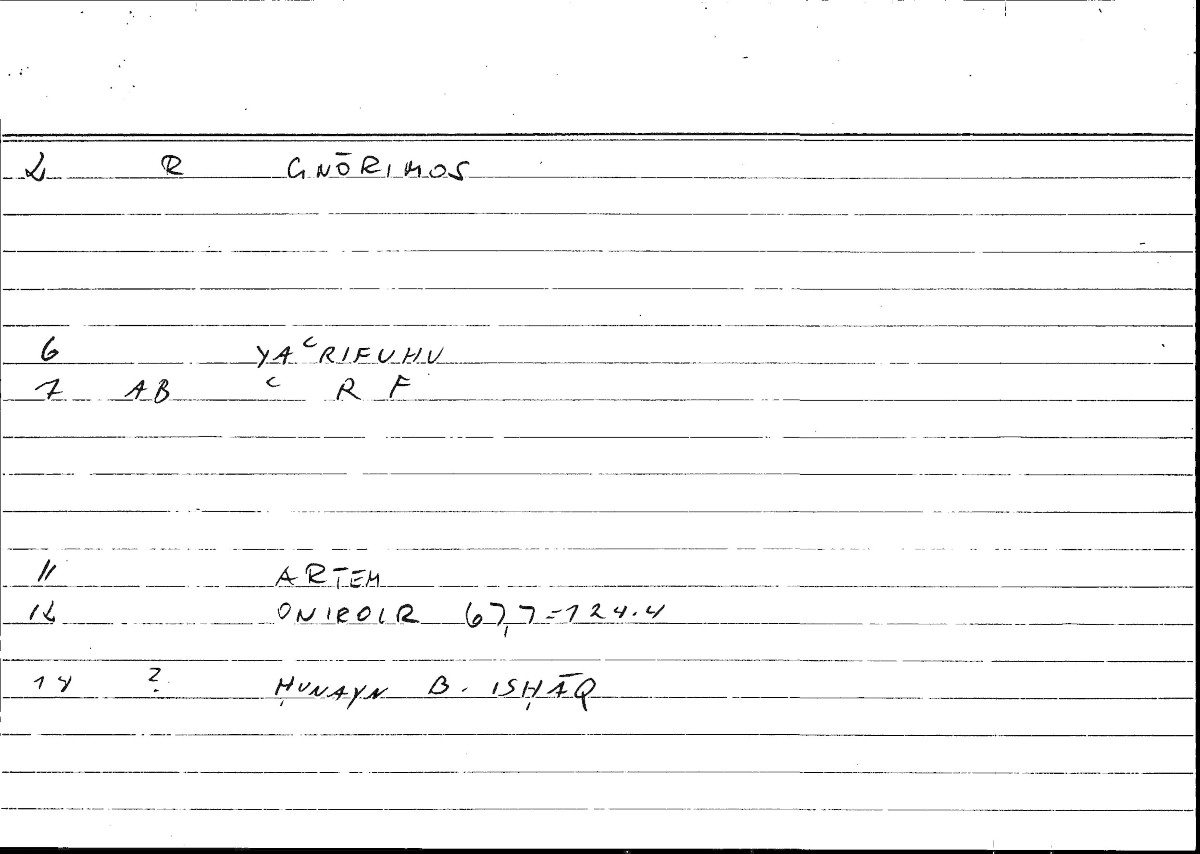 2 R GNŌRIMOS
6 YAʿRIFUHU
7 AB ʿ R F
11 ARTEM
12 ONIROIR 67,7=124.4
14 ? ḤUNAYN B. ISḤĀQ